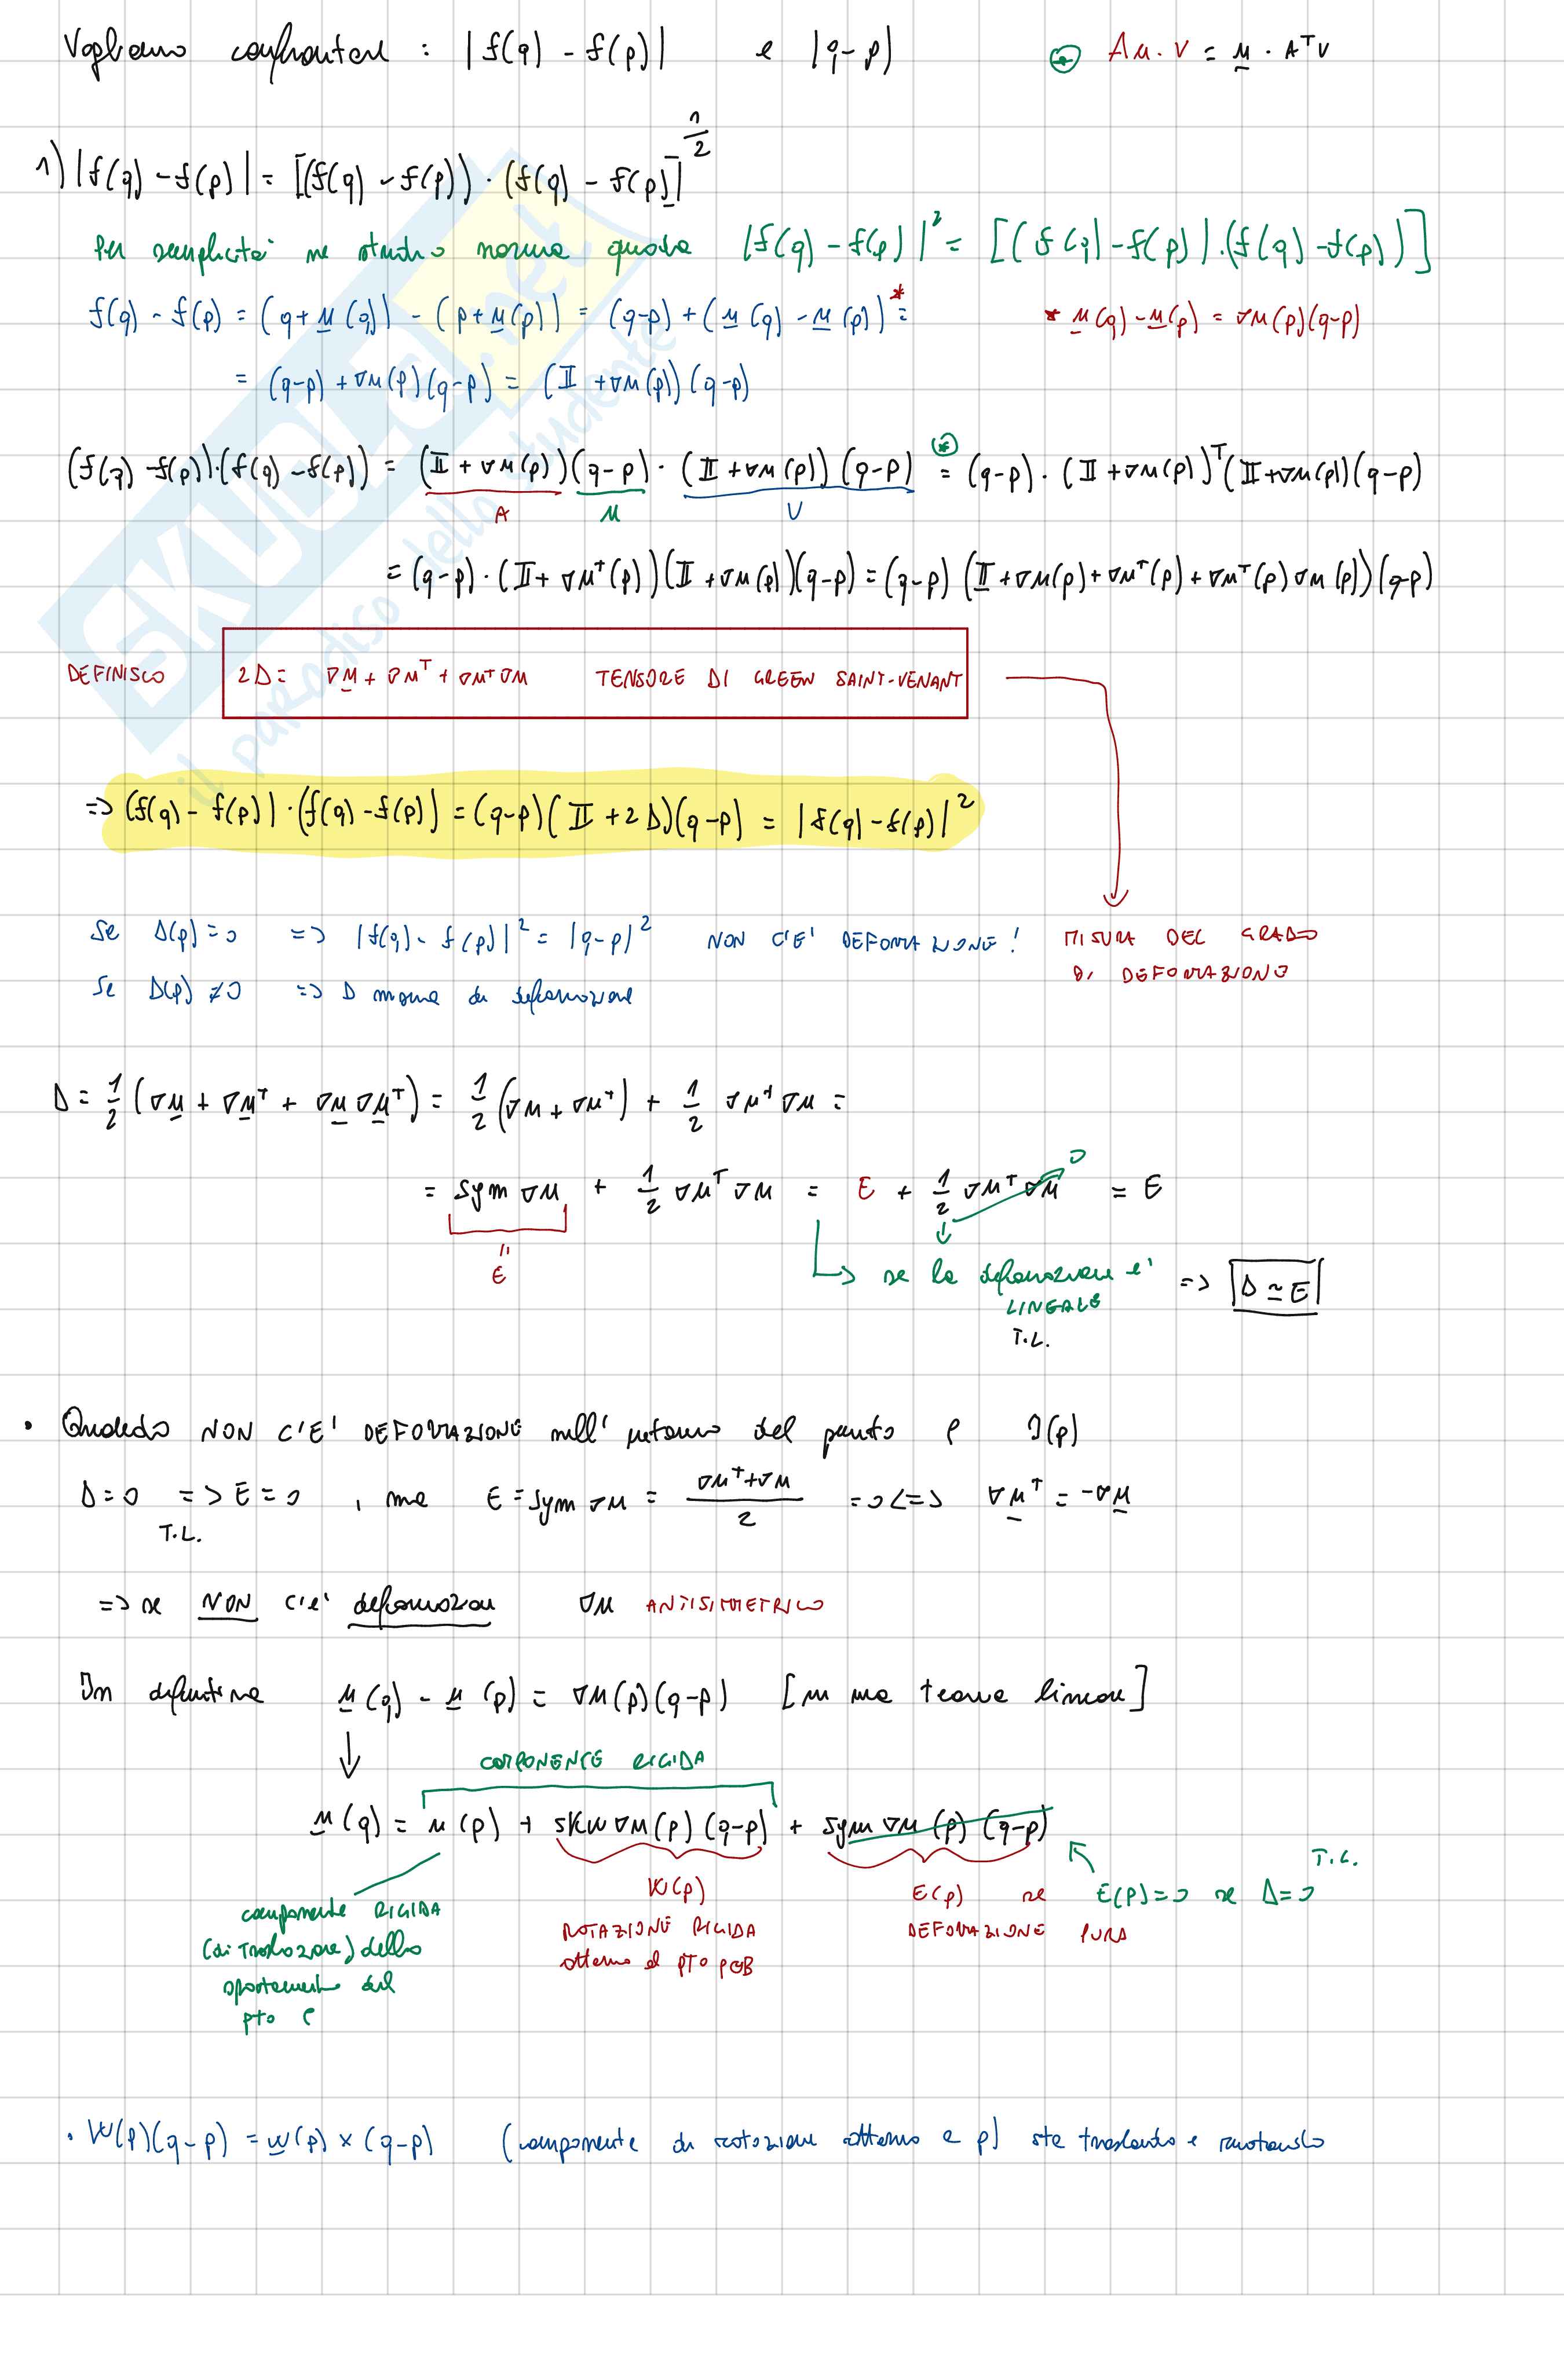 Vogliamo confrontare : |f(q) - f(p)| e |q-p| ⊛ Au·v = u · Aᵀv
1) |f(q) - f(p)| = [(f(q) - f(p)) · (f(q) - f(p)]^1/2
Per semplicità ne studio norma quadra |f(q) - f(p)|² = [(f(q) - f(p)|·(f(q) - f(p))]
f(q) - f(p) = (q+u(q)) - (p+u(p)) = (q-p) + (u(q) - u(p))* = * u(q) - u(p) = ∇u(p)(q-p)
= (q-p) + ∇u(p)(q-p) = (II + ∇u(p))(q-p)
(f(q) - f(p))·(f(q) - f(p)) = (II + ∇u(p))(q-p) · (II + ∇u(p))(q-p) ⊛= (q-p) · (II + ∇u(p))ᵀ(II + ∇u(p))(q-p)
A u v
= (q-p) · (II + ∇uᵀ(p))(II + ∇u(p))(q-p) = (q-p) (II + ∇u(p) + ∇uᵀ(p) + ∇uᵀ(p)∇u(p))(q-p)
DEFINISCO 2D = ∇u + ∇uᵀ + ∇uᵀ∇u TENSORE DI GREEN SAINT-VENANT
=> (f(q) - f(p)|·(f(q) - f(p)) = (q-p)(II + 2D)(q-p) = |f(q) - f(p)|²
Se D(p) = 0 => |f(q) - f(p)|² = |q-p|² NON C'E' DEFORMAZIONE! MISURA DEL GRADO
DI DEFORMAZIONE
Se D(p) ≠ 0 => D misura di deformazione
D = 1/2 (∇u + ∇uᵀ + ∇u∇uᵀ) = 1/2 (∇u + ∇uᵀ) + 1/2 ∇uᵀ∇u =
= sym ∇u + 1/2 ∇uᵀ∇u = E + 1/2 ∇uᵀ∇u 0 = E
"
E
↳ se la deformazione e' => D ≃ E
LINEARE
T.L.
• Quando NON C'E' DEFORMAZIONE nell' intorno del punto p I(p)
D = 0 => E = 0 , ma E = sym ∇u = (∇uᵀ+∇u)/2 = 0 <=> ∇uᵀ = -∇u
T.L.
=> se NON c'e' deformazione ∇u ANTISIMMETRICO
In definitiva u(q) - u(p) = ∇u(p)(q-p) [in una teoria lineare]
↓
COMPONENTE RIGIDA
u(q) = u(p) + skw ∇u(p)(q-p) + sym ∇u(p)(q-p)
T.L.
W(p) E(p) se E(p)=0 se D=0
componente RIGIDA
(di traslazione) dello
spostamento del
pto p
ROTAZIONE RIGIDA DEFORMAZIONE PURA
attorno al pto p∈B
• W(p)(q-p) = w(p) × (q-p) (componente di rotazione attorno a p) sta traslando e ruotando
SKUOLA.net
il paradiso dello studente